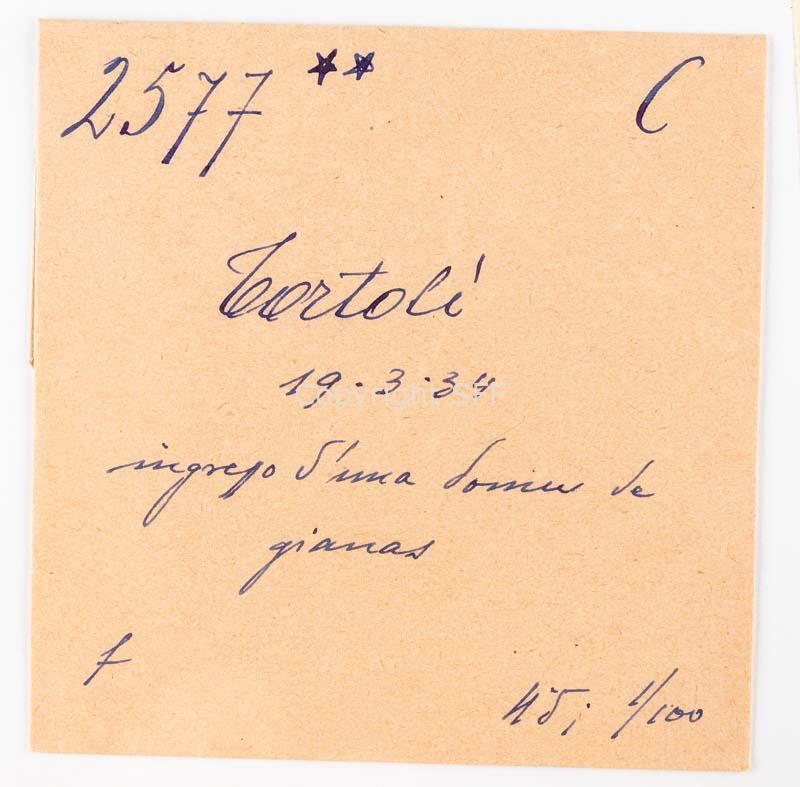 2577 ** C
Tortolí
19.3.34
Copyright SFF
ingresso d'una domu de
gianas
f
45; 1/100